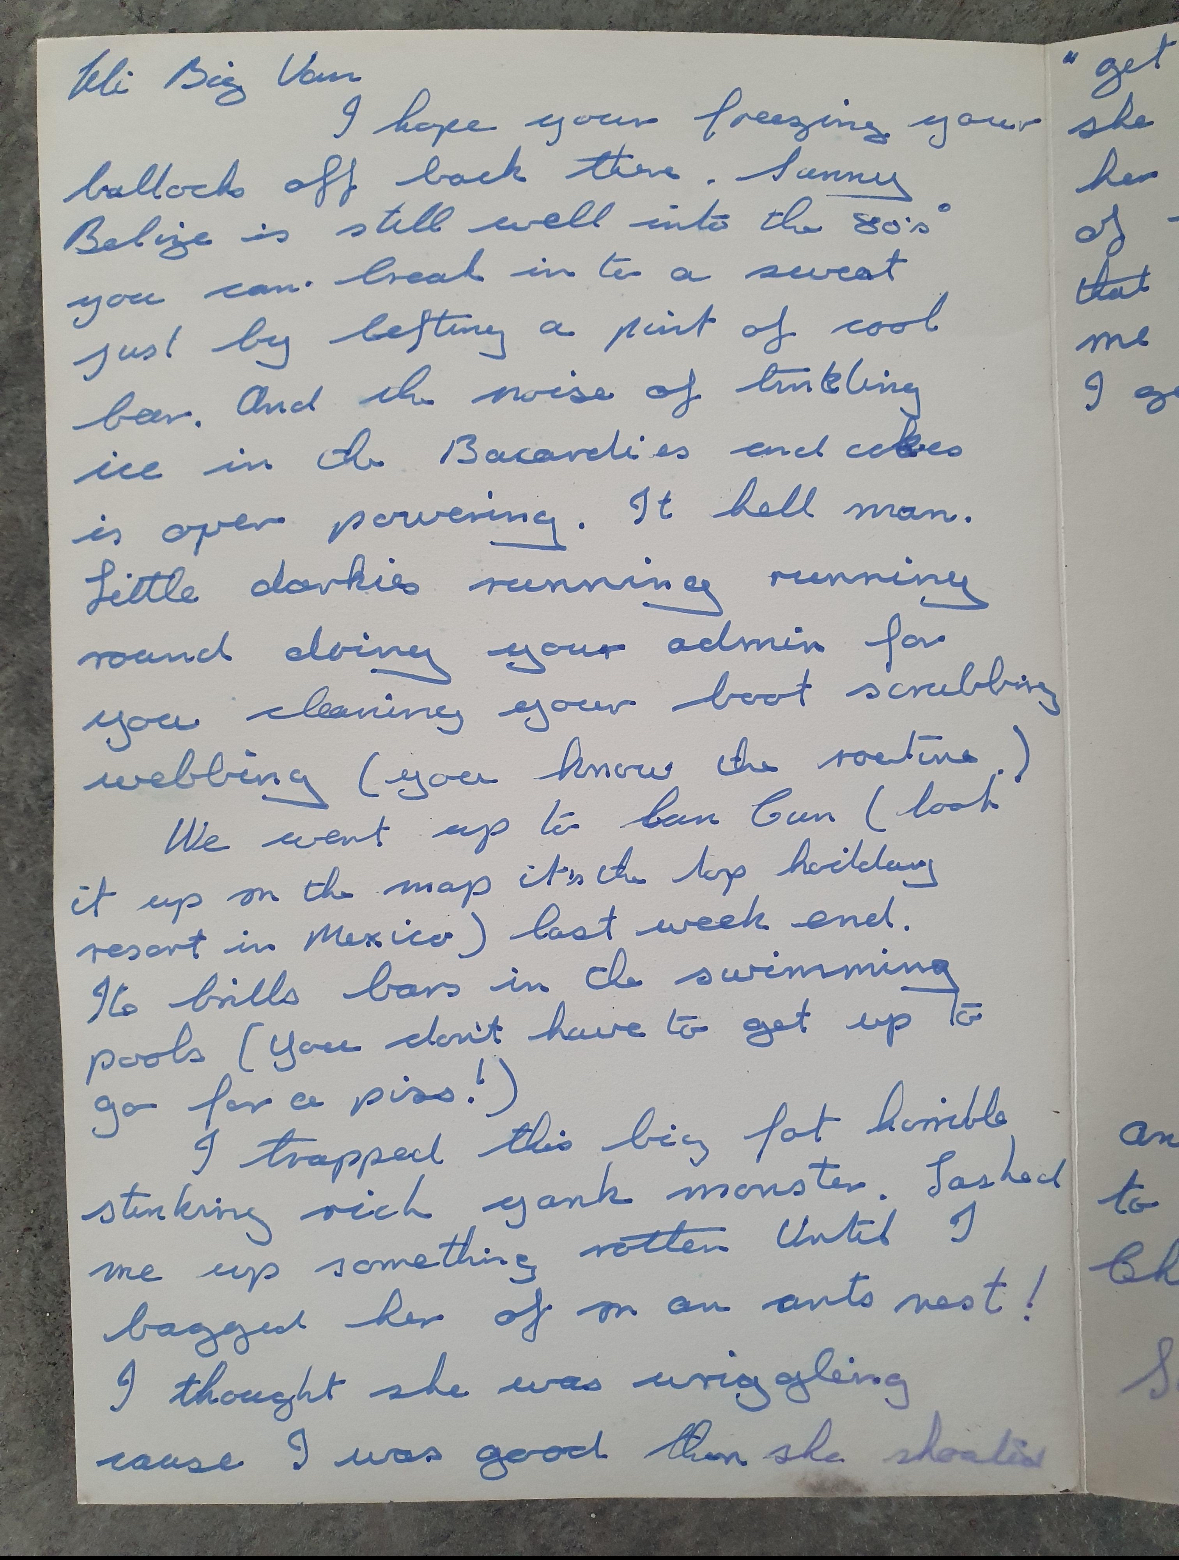 Hi Big Van
I hope your freezing your
bollocks off back there. Sunny
Belize is still well into the 80's°
you can break in to a sweat
just by lefting a pint of cool
beer. And the noise of tinkling
ice in the Bacardies and cokes
is over powering. It hell man.
Little darkies running running
round doing your admin for
you cleaning your boot scrubbing
webbing (you know the routine.)
We went up to Can Cun (look
it up on the map it's the top holiday
resort in Mexico) last week end.
Its brills bars in the swimming
pools (you don't have to get up to
go for a piss!)
I trapped this big fat horrible
stinking rich yank monster. Lashed
me up something rotten Until I
bagged her of on an ants nest!
I thought she was wriggling
cause I was good then she shouted
"get
she
her
of
that
me
I
to